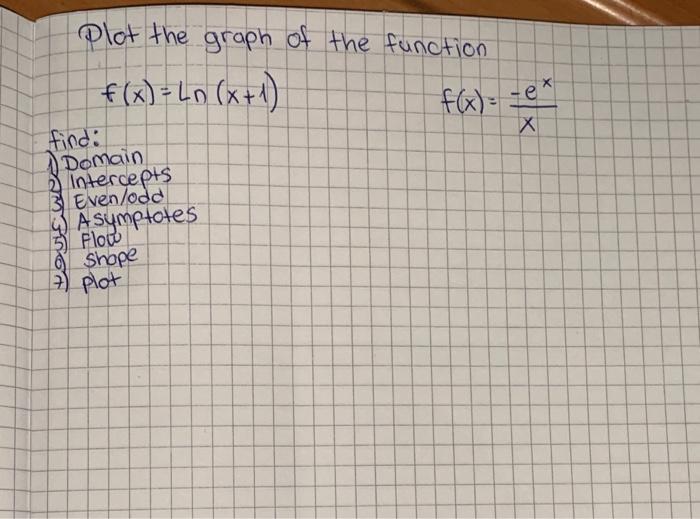 Plot the graph of the function
f(x) = Ln (x+1)
f(x) = -e^x / x
find:
1) Domain
2) Intercepts
3) Even/odd
4) Asymptotes
5) Flow
6) Shape
7) plot